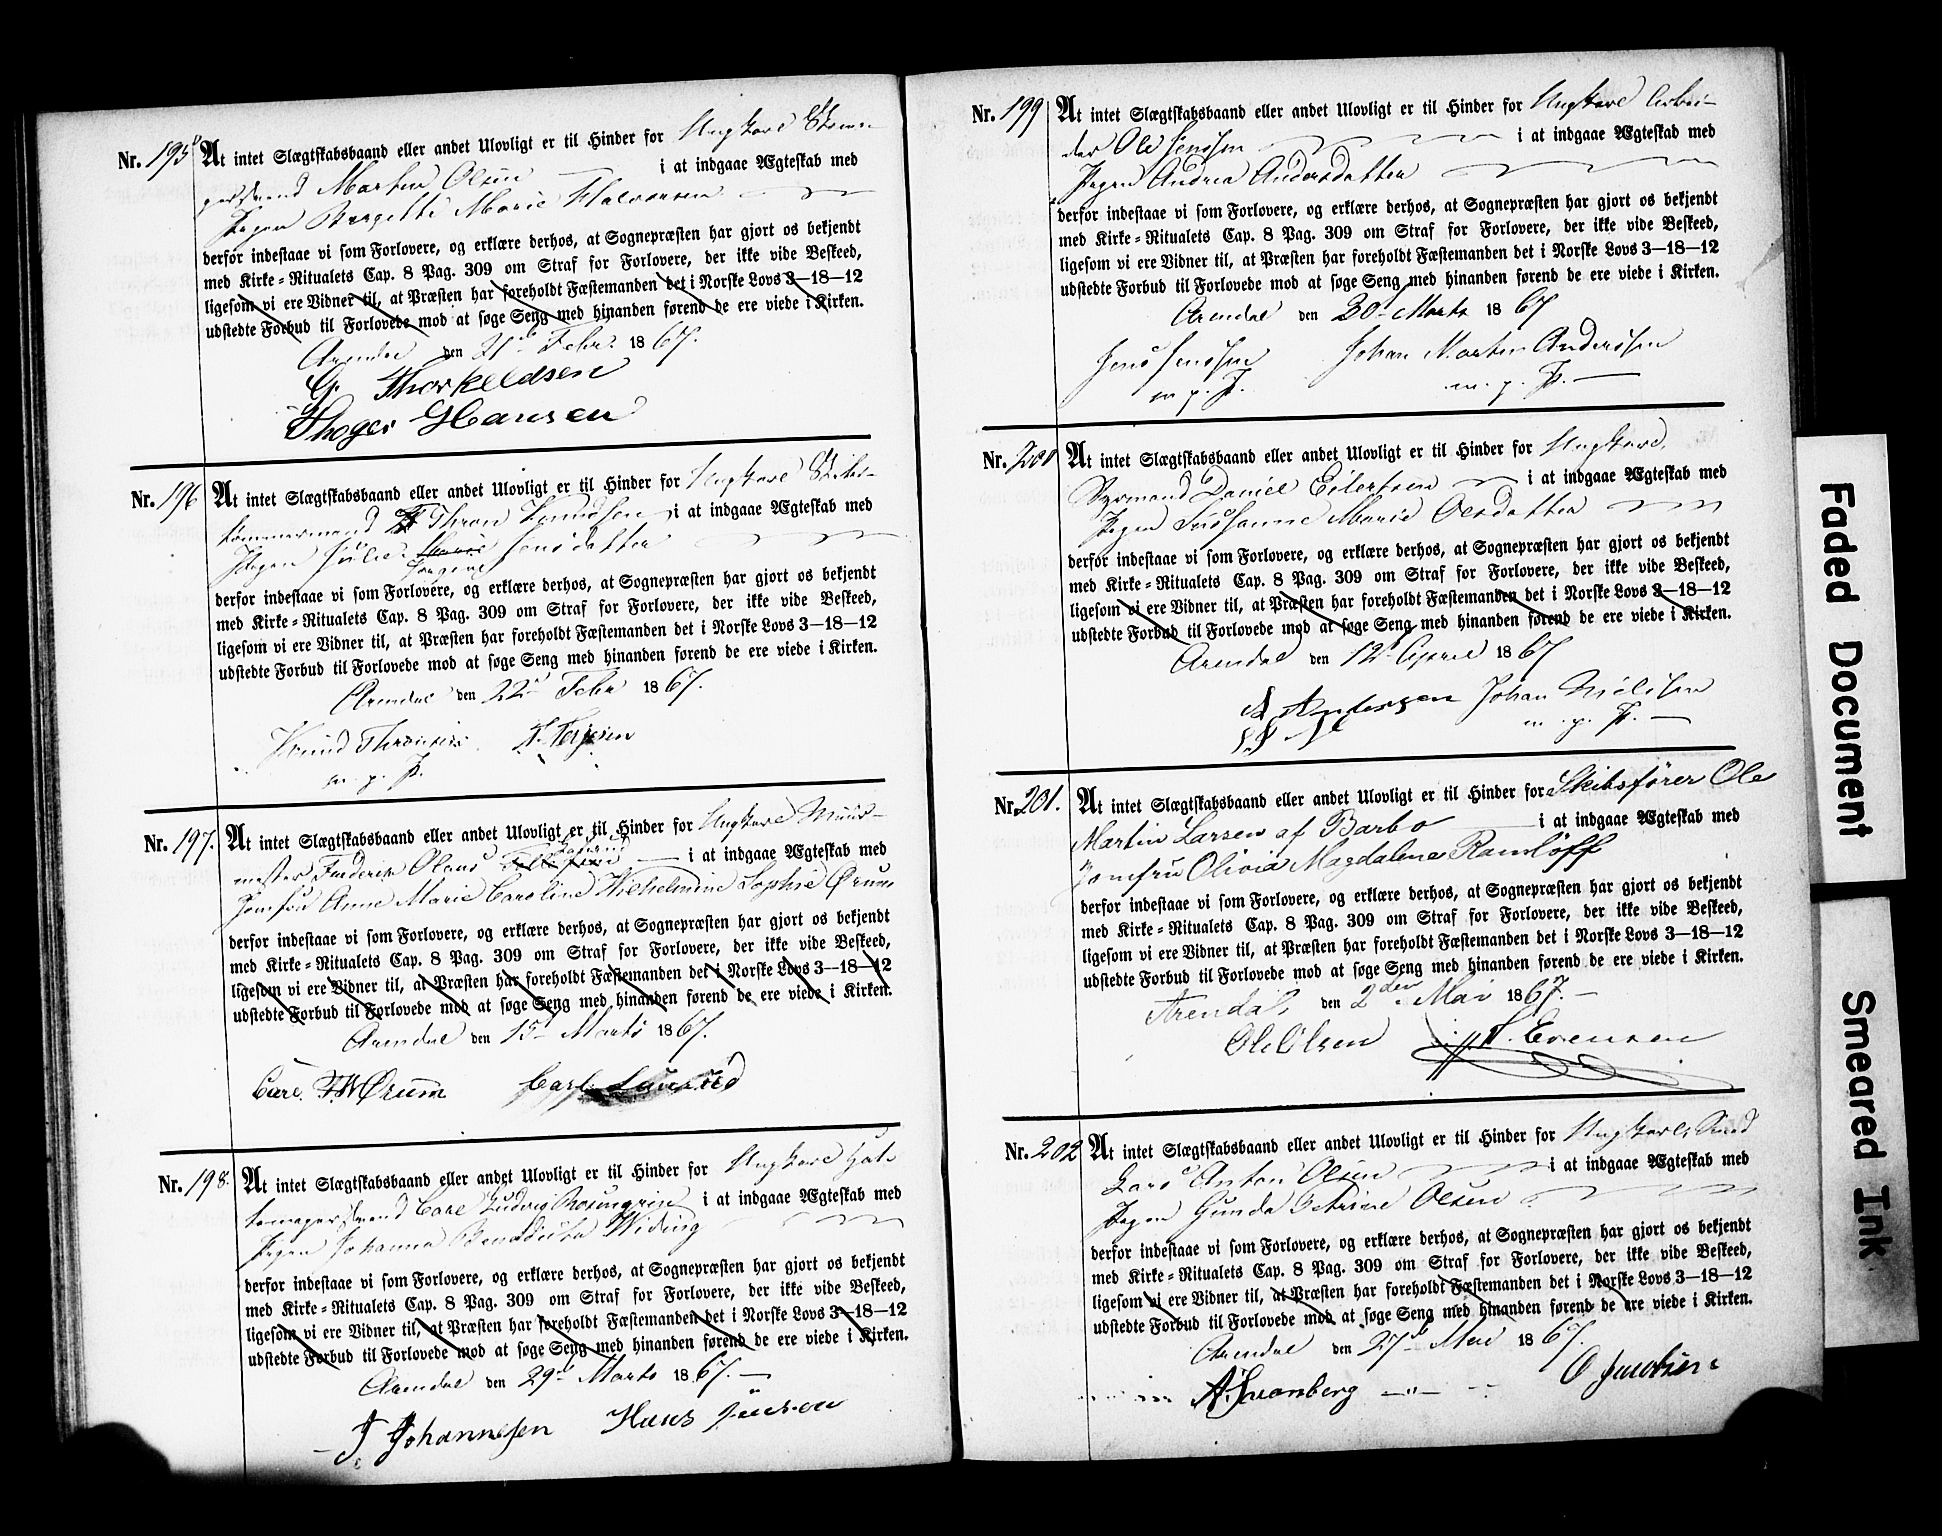 Nr. 195 At intet Slægtskabsbaand eller andet Ulovligt er til Hinder for Ungkarl
Morten Olsen i at indgaae Ægteskab med
Pigen Bergette Marie Halvorsen
derfor indestaae vi som Forlovere, og erklære derhos, at Sognepræsten har gjort os bekjendt
med Kirke-Ritualets Cap. 8 Pag. 309 om Straf for Forlovere, der ikke vide Beskeed,
ligesom vi ere Vidner til, at Præsten har foreholdt Fæstemanden det i Norske Lovs 3—18—12
udstedte Forbud til Forlovede mod at søge Seng med hinanden førend de ere viede i Kirken.
Arendal den 21de Febr. 1867.
G. Thorkeldsen
Thoger Hansen
Nr. 196 At intet Slægtskabsbaand eller andet Ulovligt er til Hinder for Ungkarl Skibs-
tømmermand Thron Knudsen i at indgaae Ægteskab med
Pigen Julie Jensdatter
derfor indestaae vi som Forlovere, og erklære derhos, at Sognepræsten har gjort os bekjendt
med Kirke-Ritualets Cap. 8 Pag. 309 om Straf for Forlovere, der ikke vide Beskeed,
ligesom vi ere Vidner til, at Præsten har foreholdt Fæstemanden det i Norske Lovs 3—18—12
udstedte Forbud til Forlovede mod at søge Seng med hinanden førend de ere viede i Kirken.
Arendal den 22d Febr 1867.
Knud Thronsen T. Terjesen
m. p. P.
Nr. 197. At intet Slægtskabsbaand eller andet Ulovligt er til Hinder for Ungkarl Muur-
mester Frederik Olaus i at indgaae Ægteskab med
Jomfru Anne Marie Caroline Wilhelmine Sophie Ørum
derfor indestaae vi som Forlovere, og erklære derhos, at Sognepræsten har gjort os bekjendt
med Kirke-Ritualets Cap. 8 Pag. 309 om Straf for Forlovere, der ikke vide Beskeed,
ligesom vi ere Vidner til, at Præsten har foreholdt Fæstemanden det i Norske Lovs 3—18—12
udstedte Forbud til Forlovede mod at søge Seng med hinanden førend de ere viede i Kirken.
Arendal den 15d Marts 1867.
Carl Ørum Carl
Nr. 198. At intet Slægtskabsbaand eller andet Ulovligt er til Hinder for Ungkarl
Carl Ludvig Rosengren i at indgaae Ægteskab med
Pigen Johanna Benedicta Widing
derfor indestaae vi som Forlovere, og erklære derhos, at Sognepræsten har gjort os bekjendt
med Kirke-Ritualets Cap. 8 Pag. 309 om Straf for Forlovere, der ikke vide Beskeed,
ligesom vi ere Vidner til, at Præsten har foreholdt Fæstemanden det i Norske Lovs 3—18—12
udstedte Forbud til Forlovede mod at søge Seng med hinanden førend de ere viede i Kirken.
Arendal den 29d Marts 1867.
J Johannesen Hans
Nr. 199 At intet Slægtskabsbaand eller andet Ulovligt er til Hinder for Ungkarl Arbei-
der Ole Jenssen i at indgaae Ægteskab med
Pigen Andrea Andersdatter
derfor indestaae vi som Forlovere, og erklære derhos, at Sognepræsten har gjort os bekjendt
med Kirke-Ritualets Cap. 8 Pag. 309 om Straf for Forlovere, der ikke vide Beskeed,
ligesom vi ere Vidner til, at Præsten har foreholdt Fæstemanden det i Norske Lovs 3—18—12
udstedte Forbud til Forlovede mod at søge Seng med hinanden førend de ere viede i Kirken.
Arendal den 30d Marts 1867
Jens Jenssen Johan Morten Anderssen
m. p. P. m. p. P.
Nr. 200 At intet Slægtskabsbaand eller andet Ulovligt er til Hinder for Ungkarl
Styrmand Daniel Eilertsen i at indgaae Ægteskab med
Pigen Susanne Marie Olsdatter
derfor indestaae vi som Forlovere, og erklære derhos, at Sognepræsten har gjort os bekjendt
med Kirke-Ritualets Cap. 8 Pag. 309 om Straf for Forlovere, der ikke vide Beskeed,
ligesom vi ere Vidner til, at Præsten har foreholdt Fæstemanden det i Norske Lovs 3—18—12
udstedte Forbud til Forlovede mod at søge Seng med hinanden førend de ere viede i Kirken.
Arendal den 12d April 1867
A Andersen Johan Nielsen
m. p. P.
Nr. 201. At intet Slægtskabsbaand eller andet Ulovligt er til Hinder for Skibsfører Ole
Martin Larsen af Barbo i at indgaae Ægteskab med
Jomfru Olivia Magdalena Ramløff
derfor indestaae vi som Forlovere, og erklære derhos, at Sognepræsten har gjort os bekjendt
med Kirke-Ritualets Cap. 8 Pag. 309 om Straf for Forlovere, der ikke vide Beskeed,
ligesom vi ere Vidner til, at Præsten har foreholdt Fæstemanden det i Norske Lovs 3—18—12
udstedte Forbud til Forlovede mod at søge Seng med hinanden førend de ere viede i Kirken.
Arendal, den 2den Mai 1867.
Ole Olsen Evensen
Nr. 202 At intet Slægtskabsbaand eller andet Ulovligt er til Hinder for Ungkarl
Lars Anton Olsen i at indgaae Ægteskab med
Pigen Gunda Olsen
derfor indestaae vi som Forlovere, og erklære derhos, at Sognepræsten har gjort os bekjendt
med Kirke-Ritualets Cap. 8 Pag. 309 om Straf for Forlovere, der ikke vide Beskeed,
ligesom vi ere Vidner til, at Præsten har foreholdt Fæstemanden det i Norske Lovs 3—18—12
udstedte Forbud til Forlovede mod at søge Seng med hinanden førend de ere viede i Kirken.
Arendal den 27d Mai 1867.
A. Svanberg O Jacobsen
Faded Document
Smeared Ink